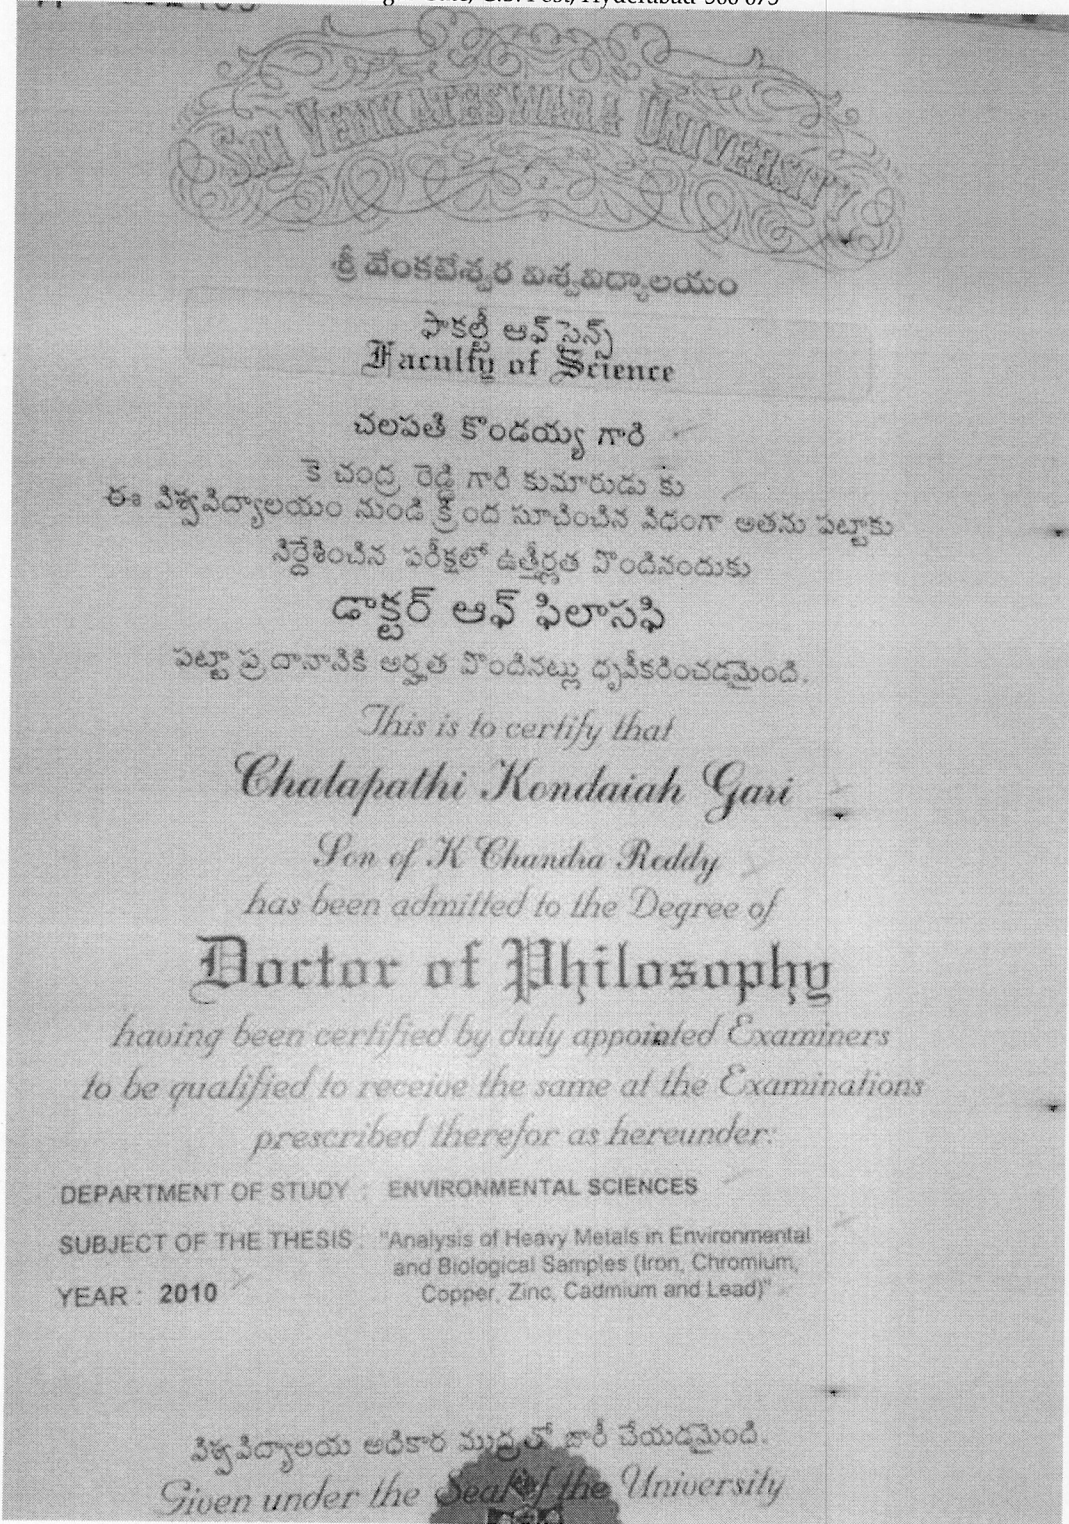 Hyderabad-500 075
SRI VENKATESWARA UNIVERSITY
శ్రీ వేంకటేశ్వర విశ్వవిద్యాలయం
ఫాకల్టీ ఆఫ్ సైన్స్
Faculty of Science
చలపతి కొండయ్య గారి
కె చంద్ర రెడ్డి గారి కుమారుడు కు
ఈ విశ్వవిద్యాలయం నుండి క్రింద సూచించిన విధంగా అతను పట్టాకు
నిర్దేశించిన పరీక్షలో ఉత్తీర్ణత పొందినందుకు
డాక్టర్ ఆఫ్ ఫిలాసఫి
పట్టా ప్రదానానికి అర్హత పొందినట్లు ధృవీకరించడమైంది.
This is to certify that
Chalapathi Kondaiah Gari
Son of K Chandra Reddy
has been admitted to the Degree of
Doctor of Philosophy
having been certified by duly appointed Examiners
to be qualified to receive the same at the Examinations
prescribed therefor as hereunder:
DEPARTMENT OF STUDY : ENVIRONMENTAL SCIENCES
SUBJECT OF THE THESIS : "Analysis of Heavy Metals in Environmental
and Biological Samples (Iron, Chromium,
Copper, Zinc, Cadmium and Lead)"
YEAR : 2010
విశ్వవిద్యాలయ అధికార ముద్రతో జారీ చేయడమైంది.
Given under the Seal of the University